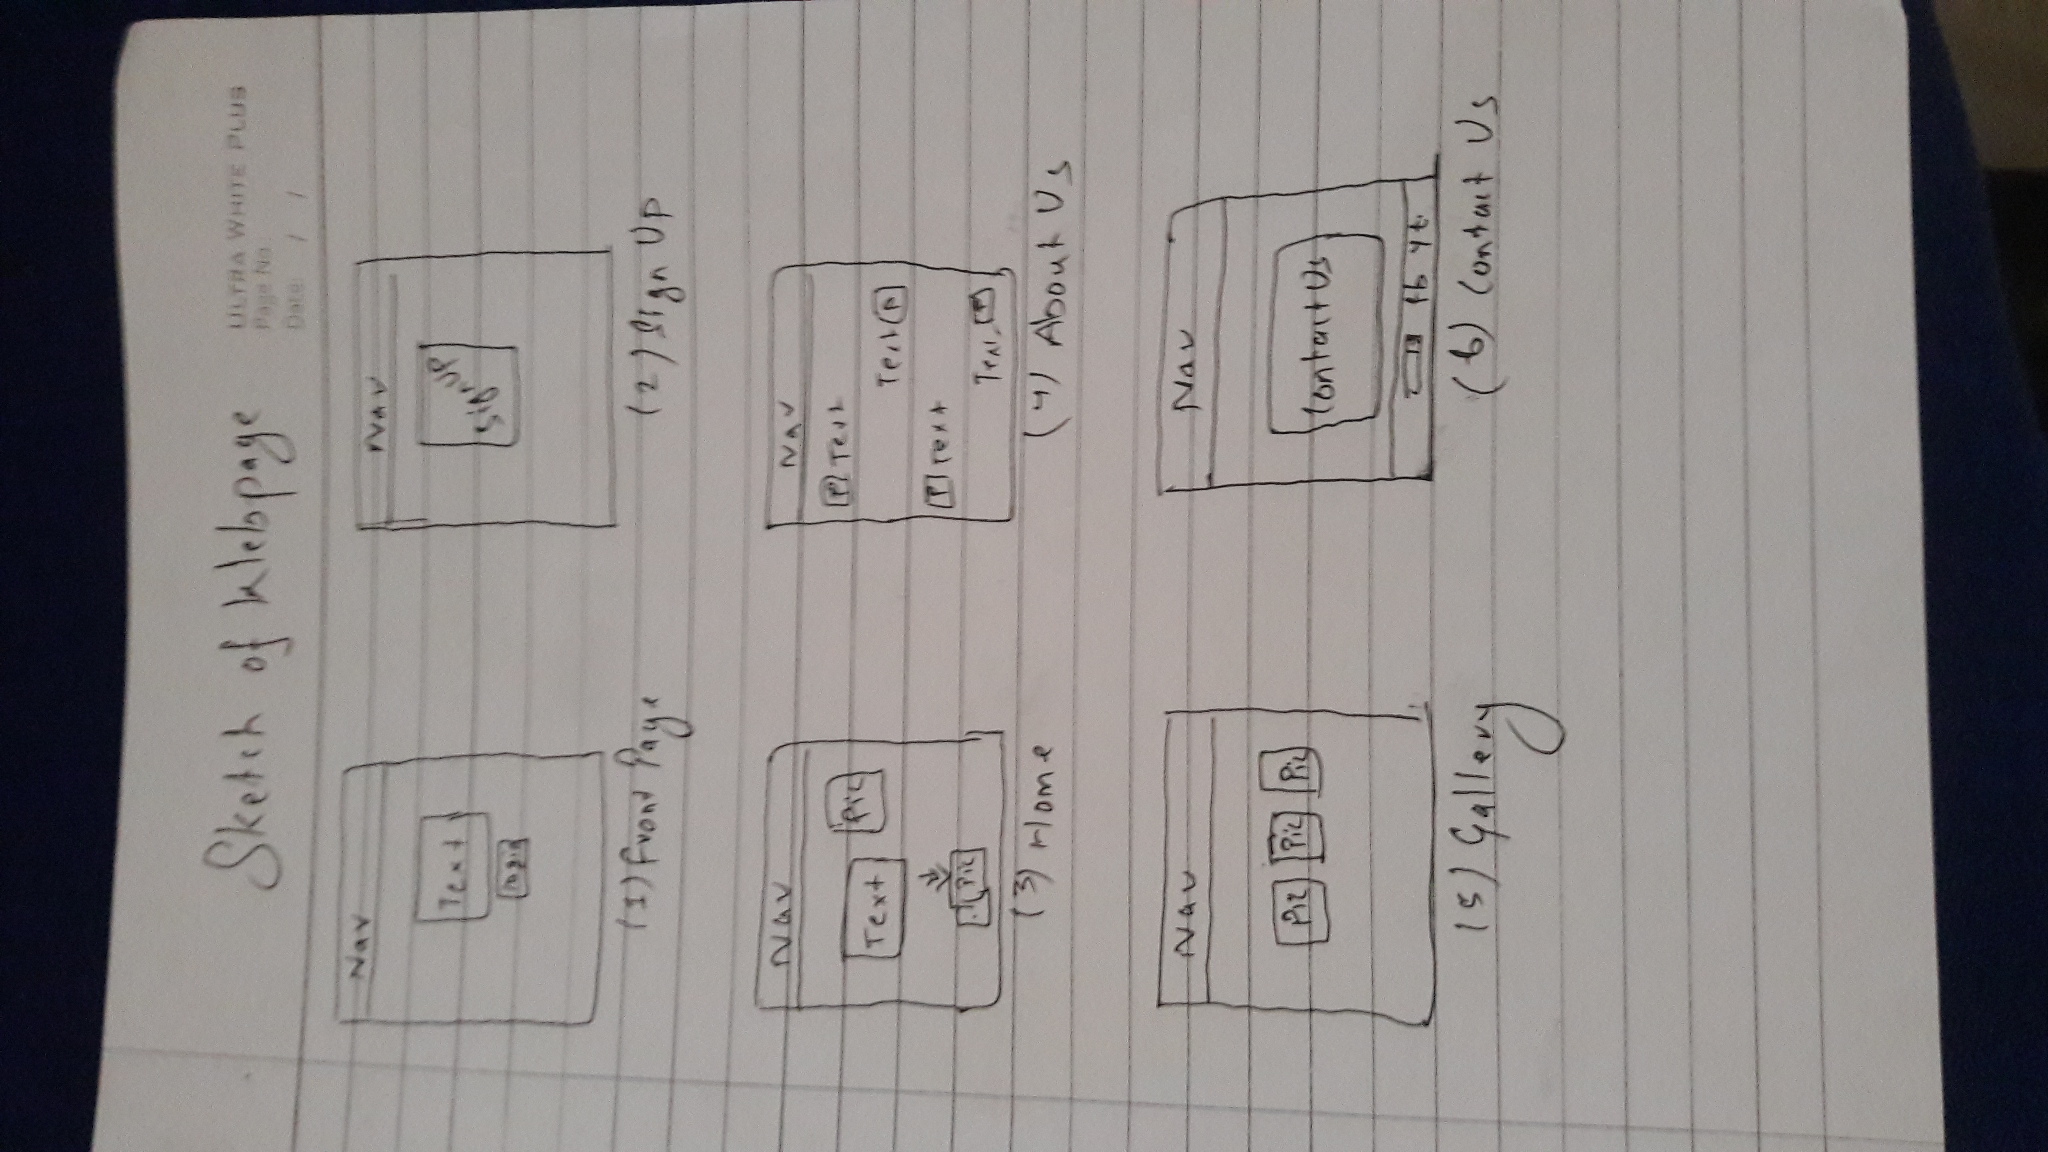 Sketch of Webpage
ULTRA WHITE PLUS
Page No.
Date: / /
Nav
Text
login
(1) Front Page
Nav
SignUP
(2) Sign Up
Nav
Text
Pic
Pic
(3) Home
Nav
P Text
Text P
P Text
Text P
(4) About Us
Nav
Pic Pic Pic
(5) Gallery
Nav
Contact Us
fb yt
(6) Contact Us